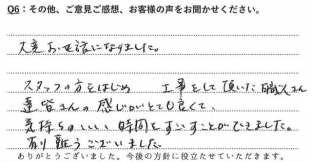 Q6：その他、ご意見ご感想、お客様の声をお聞かせください。
大変お世話になりました。
スタッフの方をはじめ 工事をして頂いた職人さん
達皆さんの感じがとても良くて、
気持ちのいい時間をすごすことができました。
有り難うございました
ありがとうございました。今後の方針に役立たせていただきます。